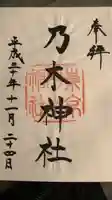 奉拝
乃木神社
平成二十年十一月二十四日